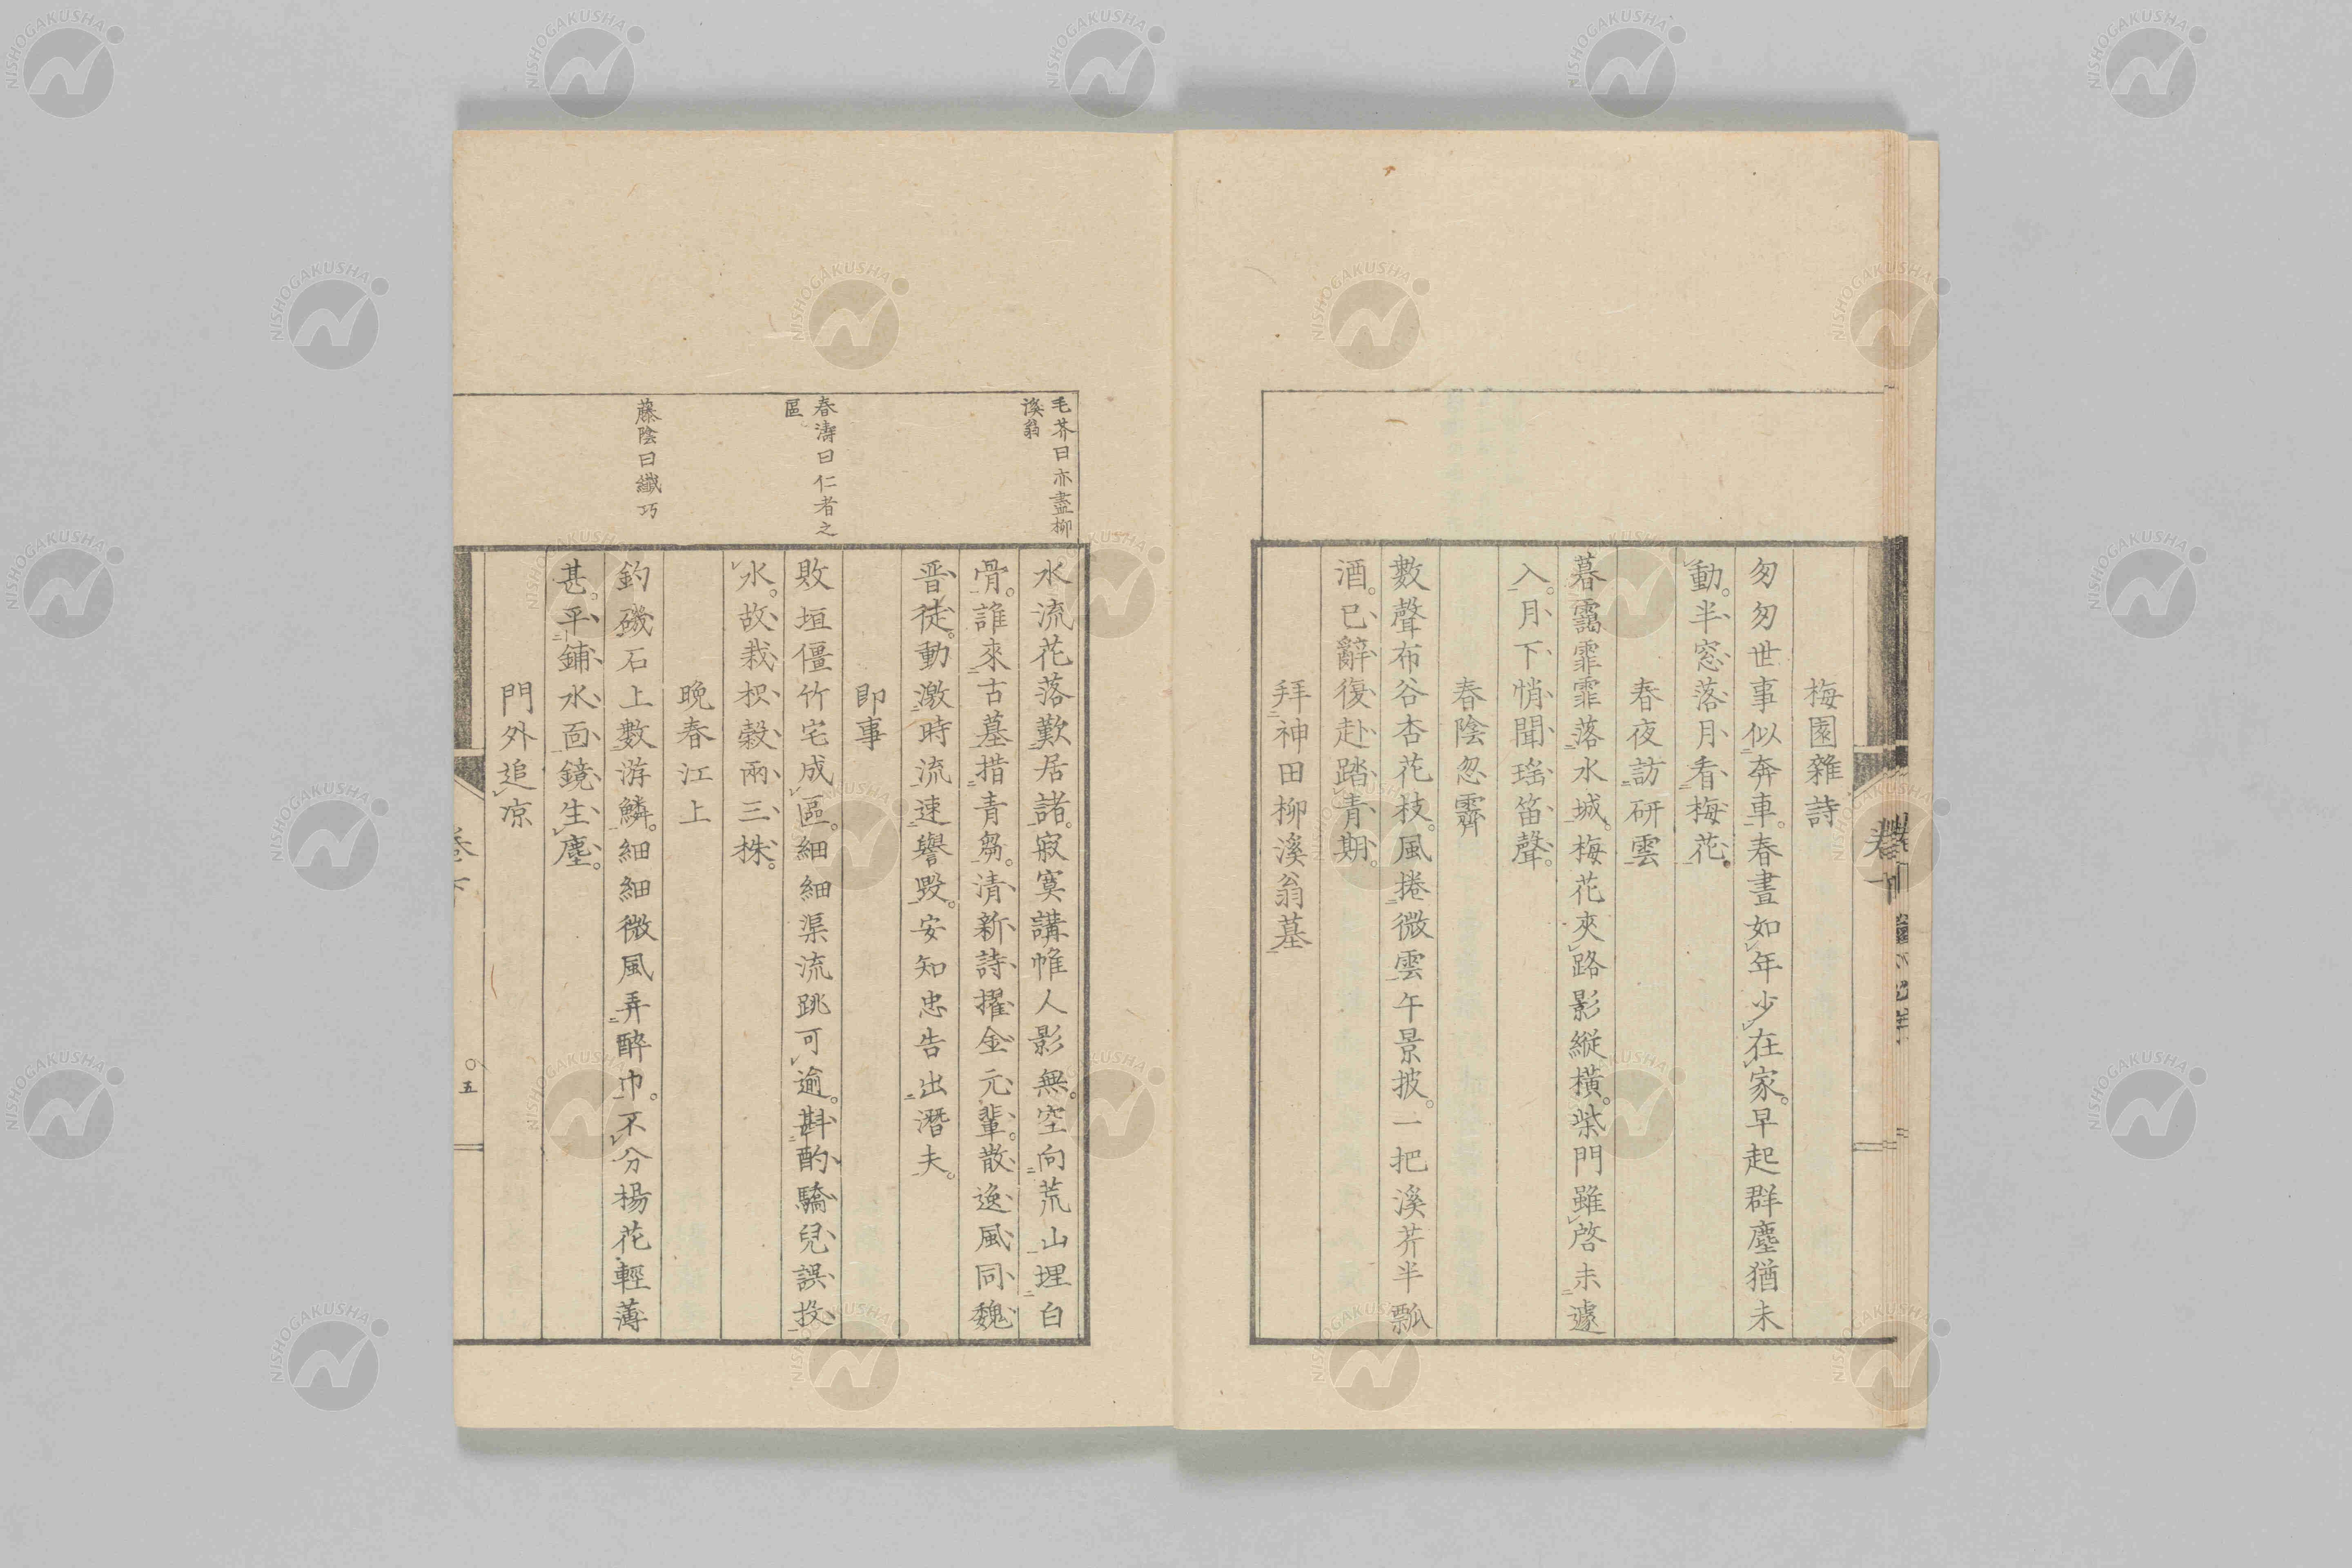 梅園雜詩
匆匆世事似奔車。春晝如年少在家。早起群塵猶未
動。半窓落月看梅花。
春夜訪研雲
暮靄霏霏落水城。梅花夾路影縱橫。柴門雖啓未遽
入。月下悄聞瑤笛聲。
春陰忽霽
數聲布谷杏花枝。風捲微雲午景披。一把溪芹半瓢
酒。已辭復赴踏青期。
拜神田柳溪翁墓
毛芥曰亦盡柳
溪翁
水流花落歎居諸。寂寞講帷人影無。空向荒山埋白
骨。誰來古墓措青芻。清新詩擢金元輩。散逸風同魏
晋徒。動激時流速譽毀。安知忠告出潛夫。
即事
春濤曰仁者之
區
敗垣僵竹宅成區。細細渠流跳可逾。斟酌驕兒誤投
水。故栽枳穀兩三株。
晚春江上
藤陰曰纖巧
釣磯石上數游鱗。細細微風弄醉巾。不分楊花輕薄
甚。平鋪水面鏡生塵。
門外追凉
五
NISHOGAKUSHA